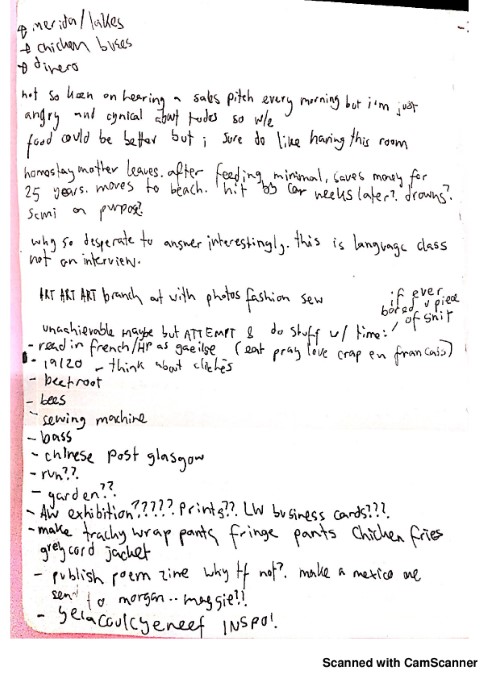 merida/lakes
chicken buses
dinero
not so keen on hearing a sales pitch every morning but i'm just
angry and cynical about dudes so w/e
food could be better but i sure do like having this room
homestay mother leaves. after feeding minimal, saves money for
25 years. moves to beach. hit by car weeks later?. drowns?.
semi on purpose?
why so desperate to answer interestingly. this is language class
not an interview.
ART ART ART branch out with photos fashion sew
if ever
bored u piece
of shit
unachievable maybe but ATTEMPT & do stuff w/ time:
- read in french/HP as gaeilge (eat pray love crap en francais)
- 19/20 - think about cliches
- beetroot
- bees
- sewing machine
- bass
- chinese post glasgow
- run??
- garden??
- AW exhibition????? Prints?? LW business cards???
- make trachy wrap pants fringe pants chicken fries
grey cord jacket
- publish poem zine why tf not?. make a mexico one
send to morgan.. maggie?!
- INSPO!
Scanned with CamScanner